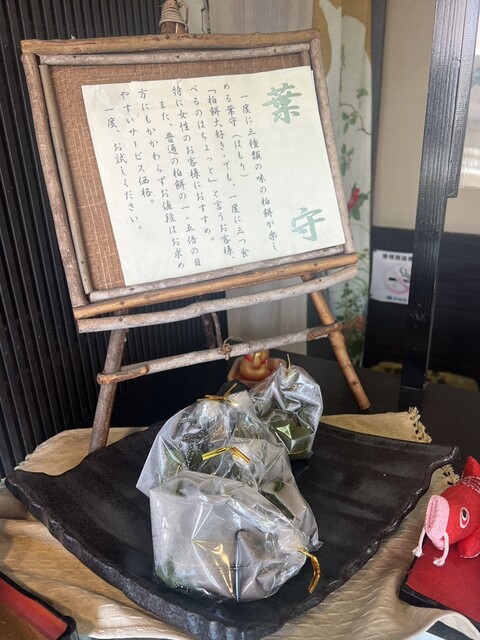 葉守
一度に三種類の味の柏餅が楽し
める葉守（はもり）。
「柏餅大好き、でも、一度に三つ食
べるのはちょっと」と言うお客様、
特に女性のお客様におすすめ。
また、普通の柏餅の一・五倍の目
方にもかかわらずお値段はお求め
やすいサービス価格。
一度、お試しください。